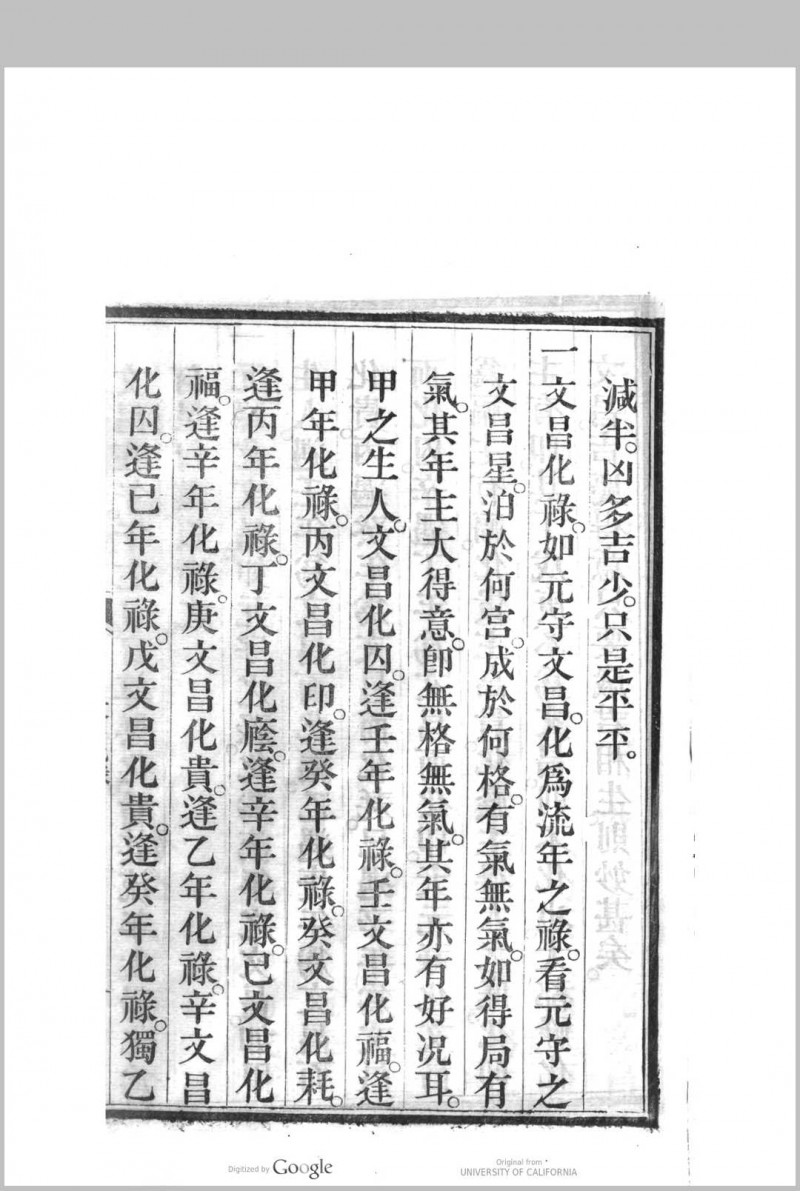 減半。凶多吉少。只是平平。
一文昌化祿。如元守文昌。化爲流年之祿。看元守之
文昌星。泊於何宮。成於何格。有氣無氣。如得局有
氣。其年主大得意。卽無格無氣。其年亦有好况耳。
甲之生人。文昌化囚。逢壬年化祿。壬文昌化福。逢
甲年化祿。丙文昌化印。逢癸年化祿。癸文昌化耗。
逢丙年化祿。丁文昌化廕。逢辛年化祿。己文昌化
福。逢辛年化祿。庚文昌化貴。逢乙年化祿。辛文昌
化囚。逢已年化祿。戊文昌化貴。逢癸年化祿。獨乙
Digitized by Google
Original from
UNIVERSITY OF CALIFORNIA